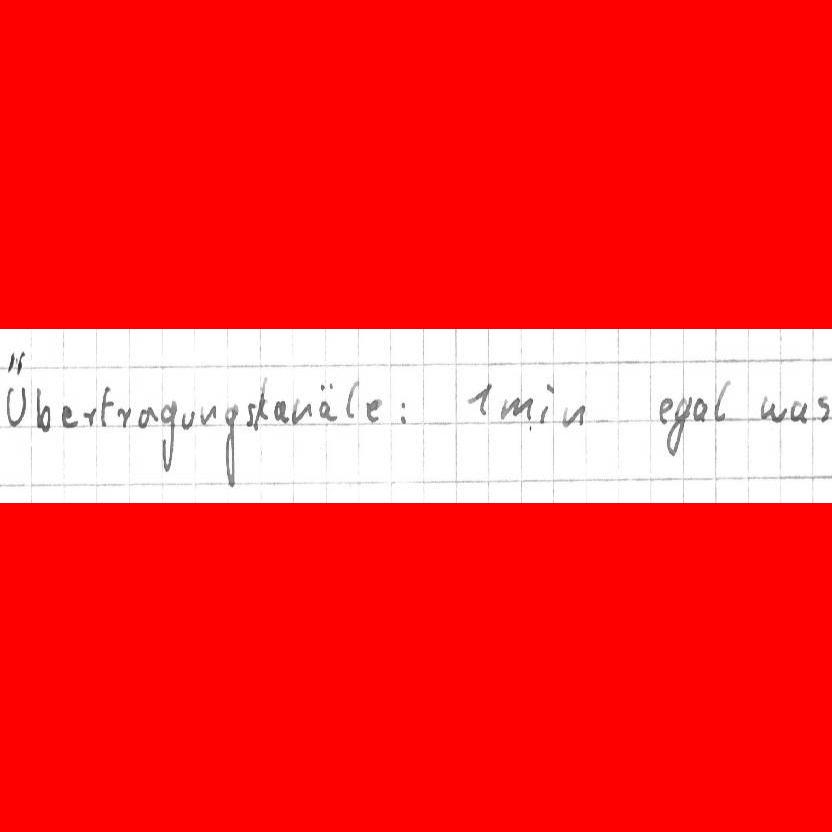 Übertragungskanäle: 1min egal was